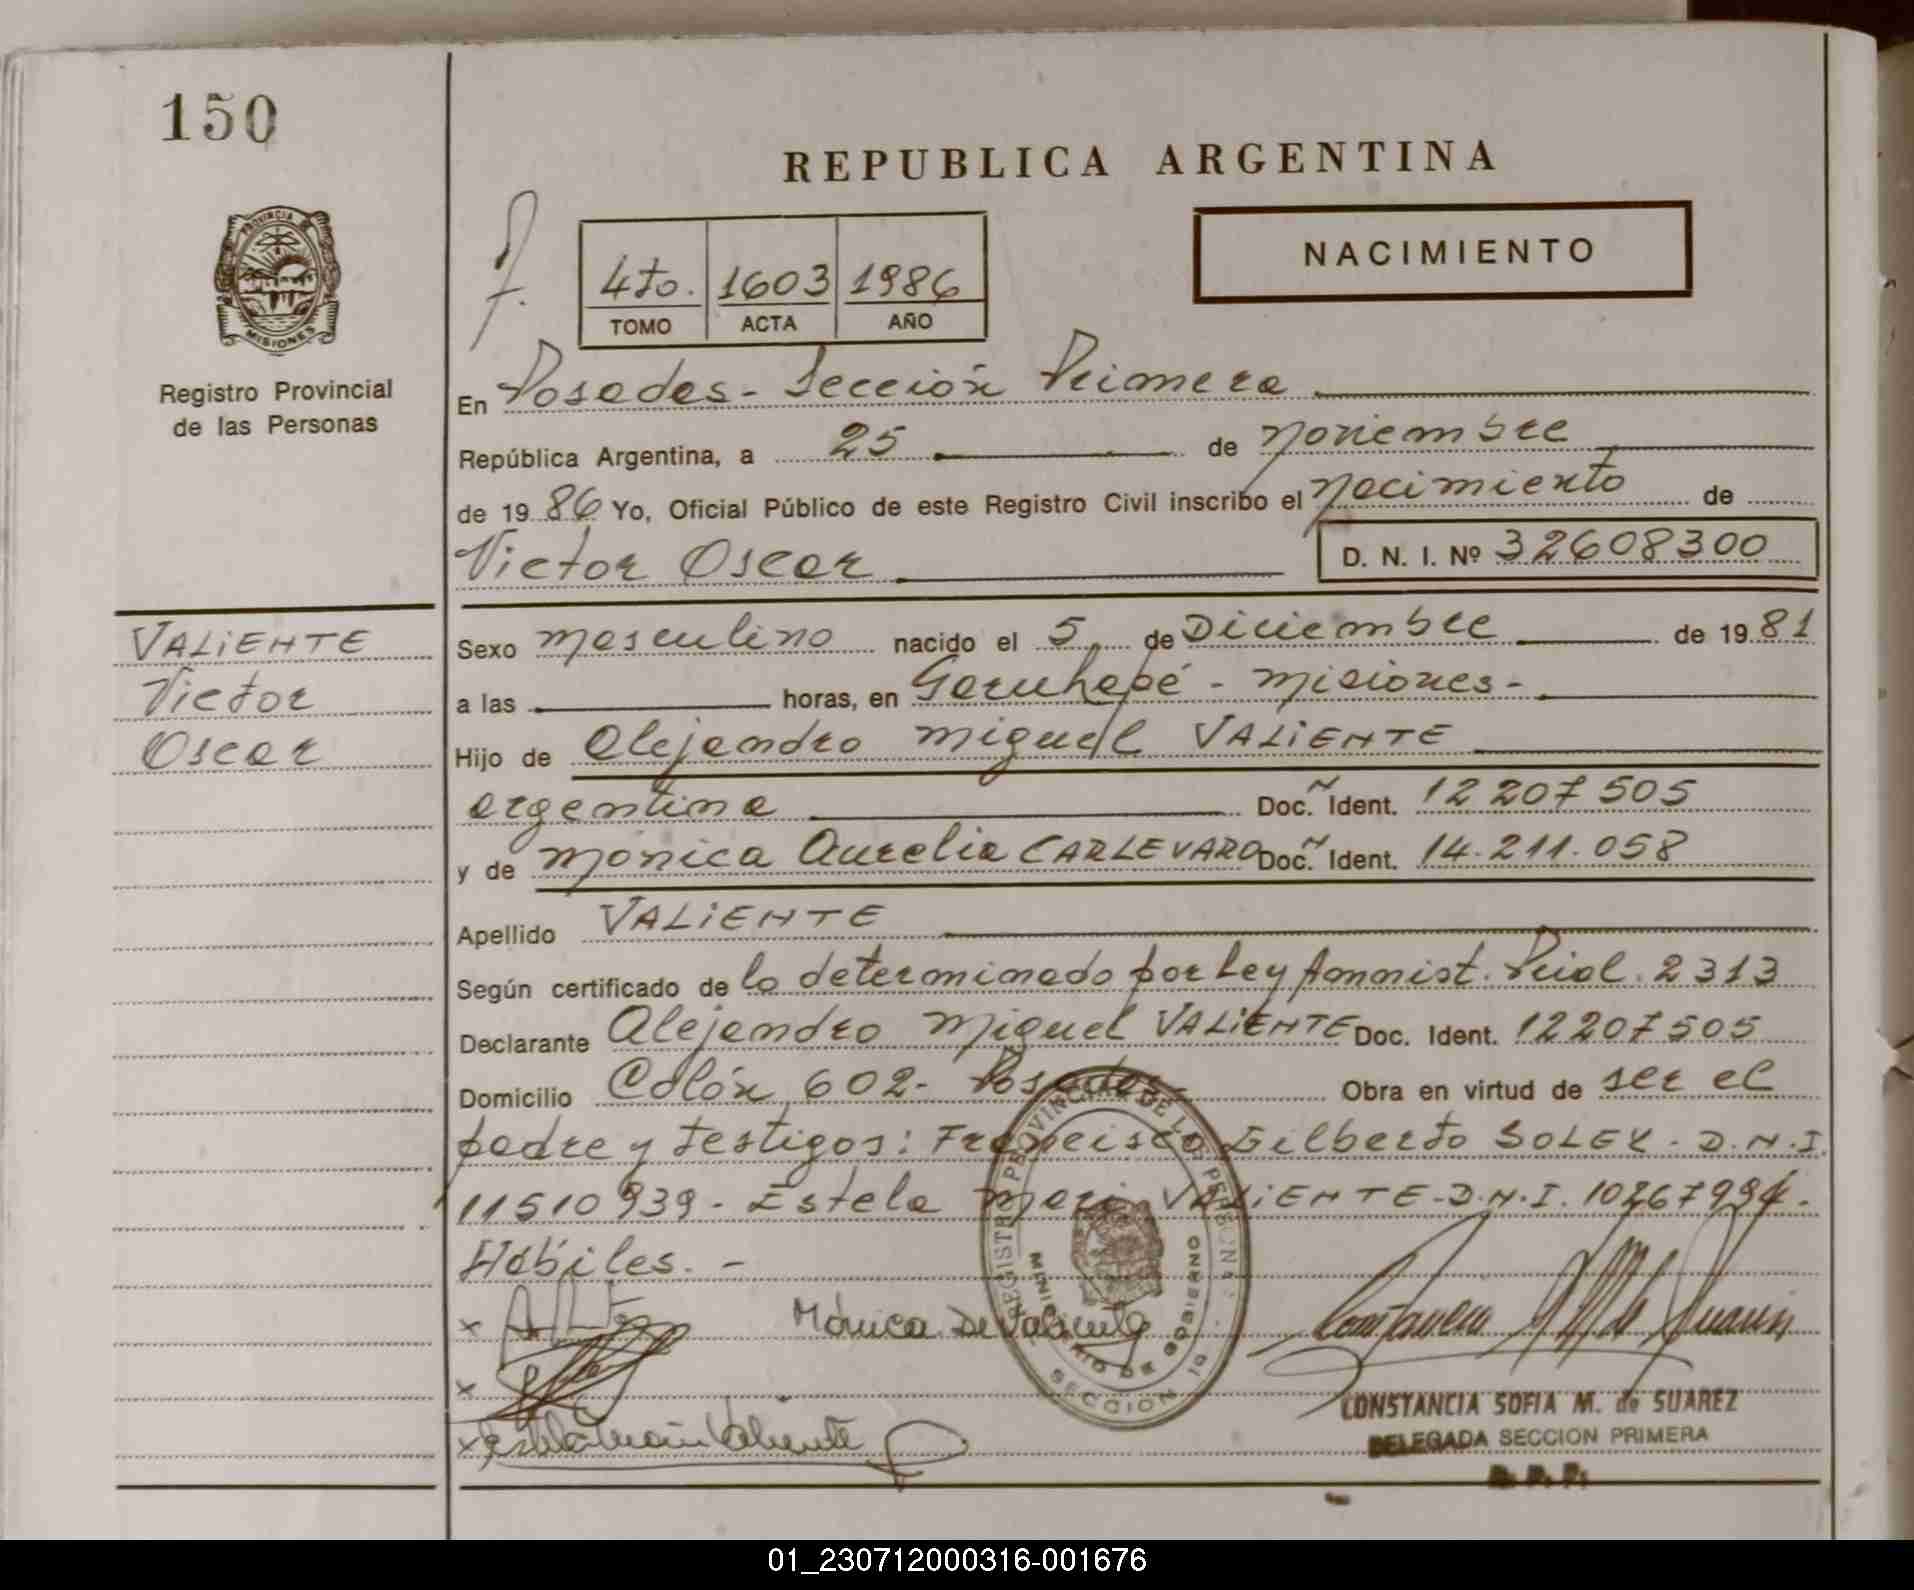 150
REPUBLICA ARGENTINA
PROVINCIA DE MISIONES
Registro Provincial
de las Personas
4to. 1603 1986
TOMO ACTA AÑO
NACIMIENTO
En Posadas - Sección Primera
República Argentina, a 25 de noviembre
de 1986 Yo, Oficial Público de este Registro Civil inscribo el nacimiento de
Victor Oscar D. N. I. Nº 32608300
VALiENTE
Victor
Oscar
Sexo masculino nacido el 5 de Diciembre de 1981
a las horas, en Garuhapé - Misiones -
Hijo de Alejandro Miguel VALiENTE
argentina Doc. Ident. 12207505
y de Mónica Aurelia CARLEVARO Doc. Ident. 14.211.058
Apellido VALiENTE
Según certificado de lo determinado por Ley Amnist. Pcial. 2313
Declarante Alejandro Miguel VALiENTE Doc. Ident. 12207505
Domicilio Colón 602 - Posadas - Obra en virtud de ser el
padre y testigos: Francisco Gilberto SOLEY - D.N.I.
11510939 - Estela Mari VALiENTE - D.N.I. 10267994.
Hábiles. -
Mónica De Valiente
REGISTRO PROVINCIAL DE LAS PERSONAS
MINISTERIO DE GOBIERNO
SECCION 1ª
CONSTANCIA SOFIA M. de SUAREZ
DELEGADA SECCION PRIMERA
R. P. P.
01_230712000316-001676